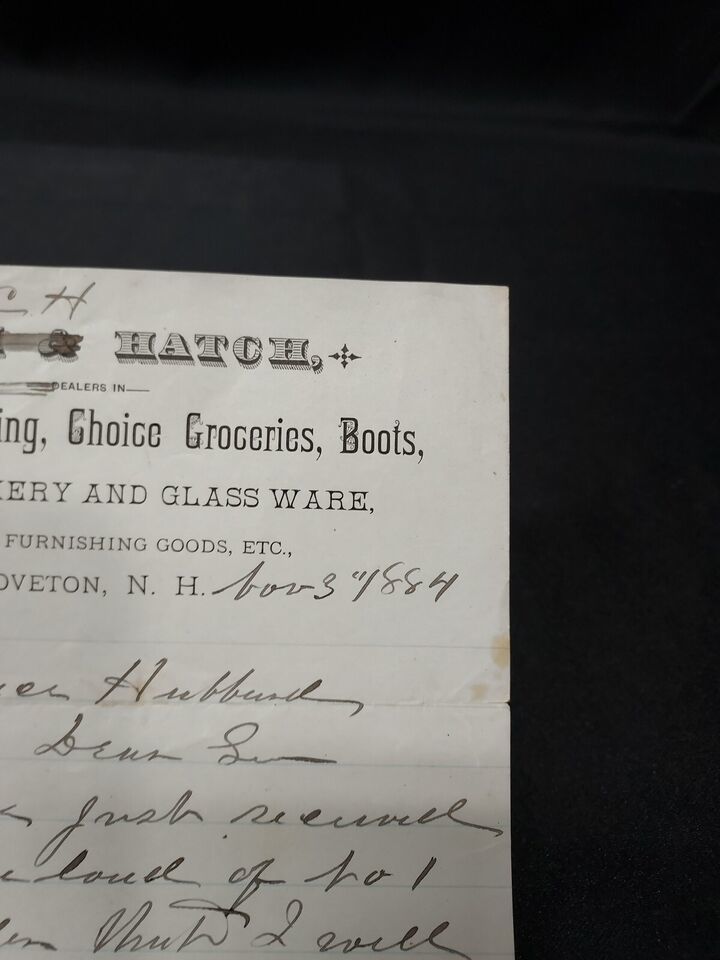 C H
& HATCH,
DEALERS IN
ing, Choice Groceries, Boots,
KERY AND GLASS WARE,
FURNISHING GOODS, ETC.,
OVETON, N. H. Nov 3" 1884
Hubbard
Dear Sir
Just received
load of No 1
that I will